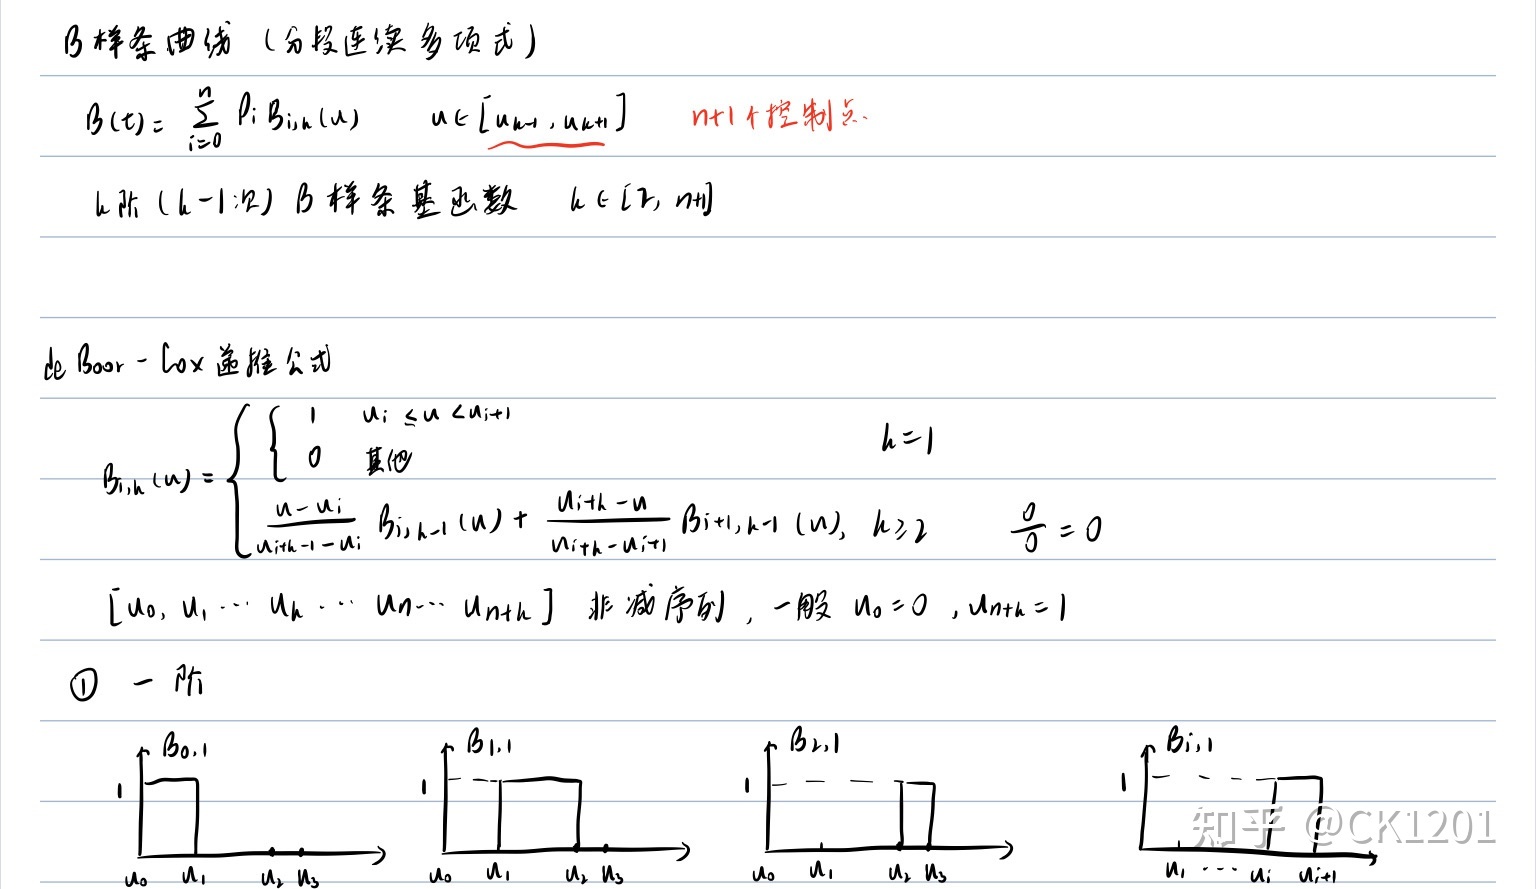 B样条曲线（分段连续多项式）
B(t)= \sum_{i=0}^{n} P_i B_{i,k}(u)  u∈[u_{k-1}, u_{k+1}]  n+1个控制点.
k阶(k-1次) B样条基函数  k∈[2, n+1]
de Boor-Cox 递推公式
1  u_i ≤ u < u_{i+1}
0  其他  k=1
B_{i,k}(u) =
\frac{u-u_i}{u_{i+k-1}-u_i} B_{i,k-1}(u) + \frac{u_{i+k}-u}{u_{i+k}-u_{i+1}} B_{i+1,k-1}(u), k≥2  \frac{0}{0}=0
[u_0, u_1 ··· u_k ··· u_n ··· u_{n+k}] 非减序列，一般 u_0=0, u_{n+k}=1
① 一阶
B_{0,1}  B_{1,1}  B_{2,1}  B_{i,1}
1  1  1  1
u_0 u_1 u_2 u_3  u_0 u_1 u_2 u_3  u_0 u_1 u_2 u_3  u_1 ··· u_i u_{i+1}
知乎 @CK1201